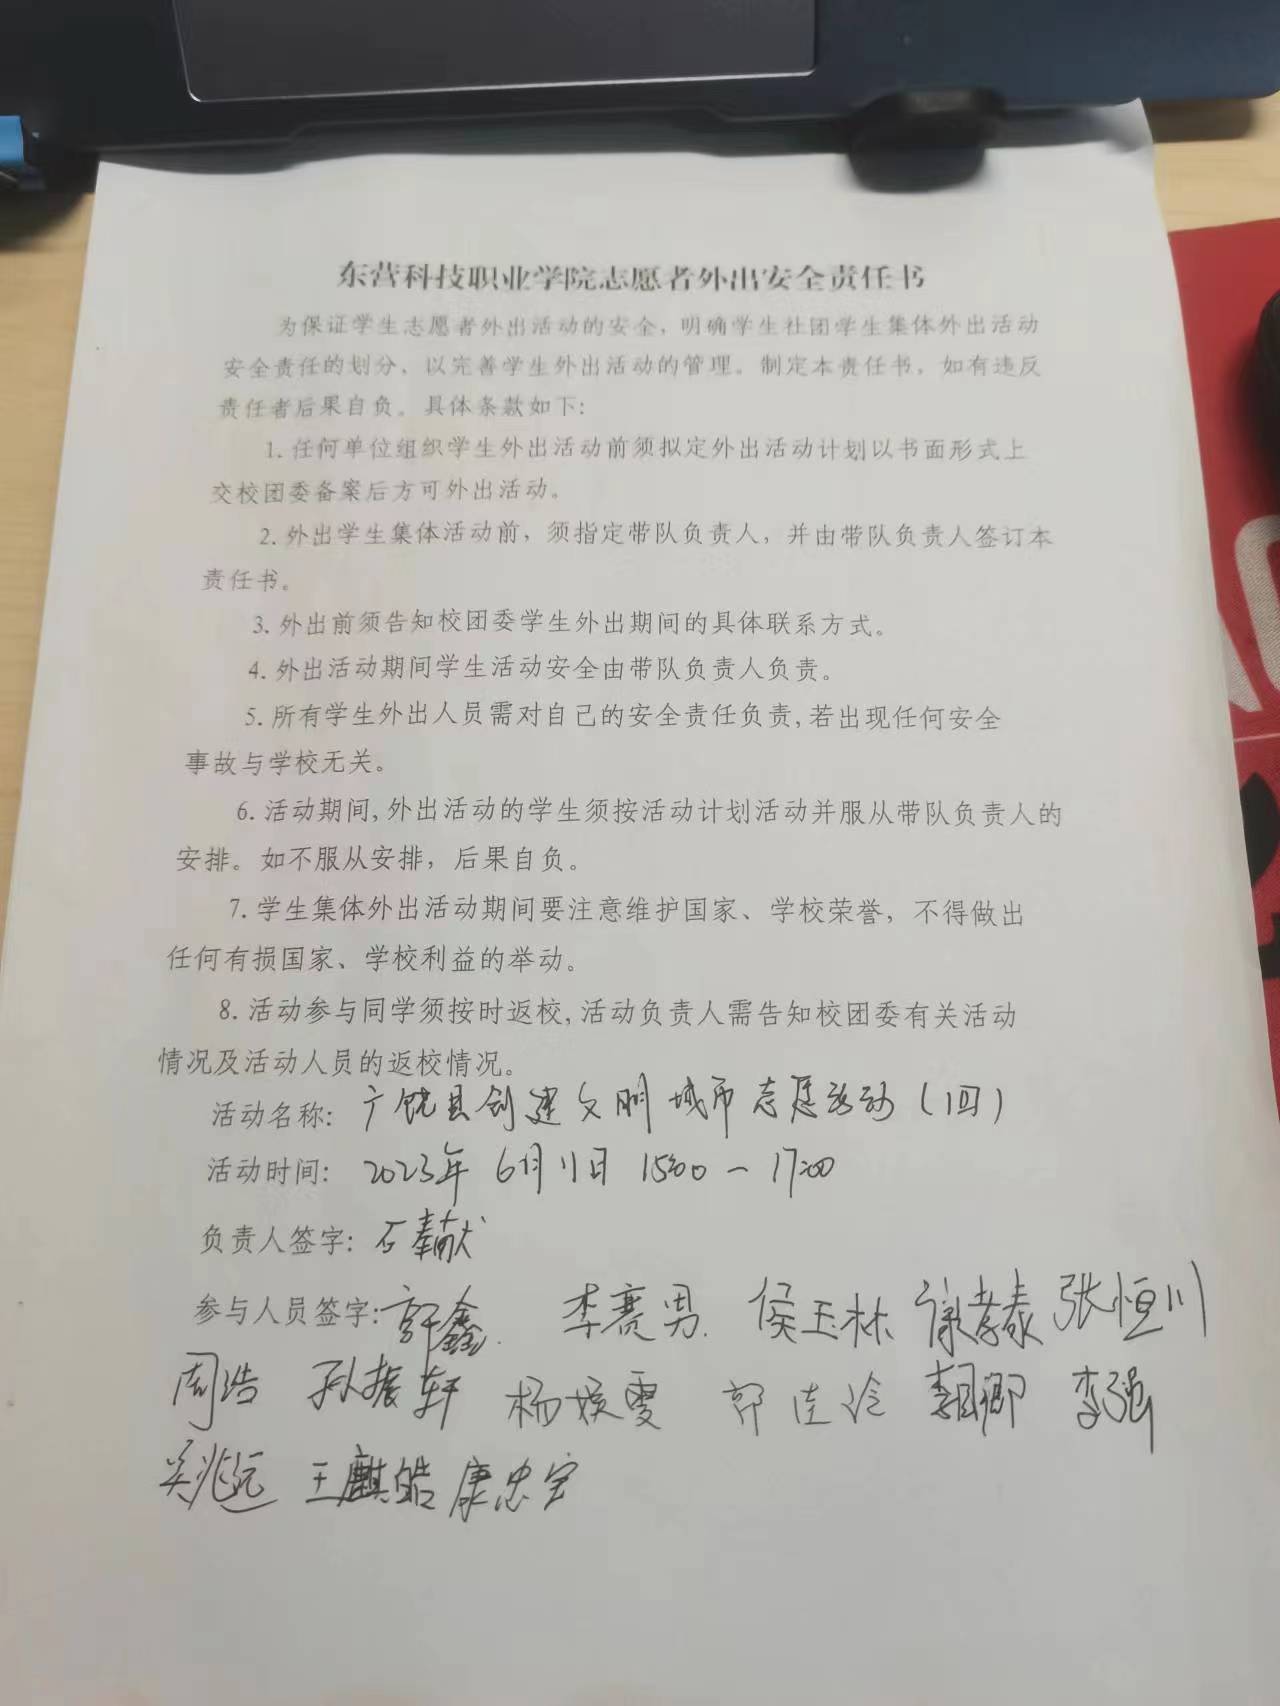 东营科技职业学院志愿者外出安全责任书
为保证学生志愿者外出活动的安全，明确学生社团学生集体外出活动
安全责任的划分、以完善学生外出活动的管理。制定本责任书，如有违反
责任者后果自负。具体条款如下：
1. 任何单位组织学生外出活动前须拟定外出活动计划以书面形式上
交校团委备案后方可外出活动。
2. 外出学生集体活动前，须指定带队负责人，并由带队负责人签订本
责任书。
3. 外出前须告知校团委学生外出期间的具体联系方式。
4. 外出活动期间学生活动安全由带队负责人负责。
5. 所有学生外出人员需对自己的安全责任负责，若出现任何安全
事故与学校无关。
6. 活动期间，外出活动的学生须按活动计划活动并服从带队负责人的
安排。如不服从安排，后果自负。
7. 学生集体外出活动期间要注意维护国家、学校荣誉，不得做出
任何有损国家、学校利益的举动。
8. 活动参与同学须按时返校，活动负责人需告知校团委有关活动
情况及活动人员的返校情况。
活动名称：广饶县创建文明城市志愿活动（1回）
活动时间：2023年 6月11日 15:00 — 17:00
负责人签字：石奉献
参与人员签字：郭鑫 李赛男 侯玉林 张恒川
周浩 孙振轩 李强
吴兆远 王麒皓 康忠宝